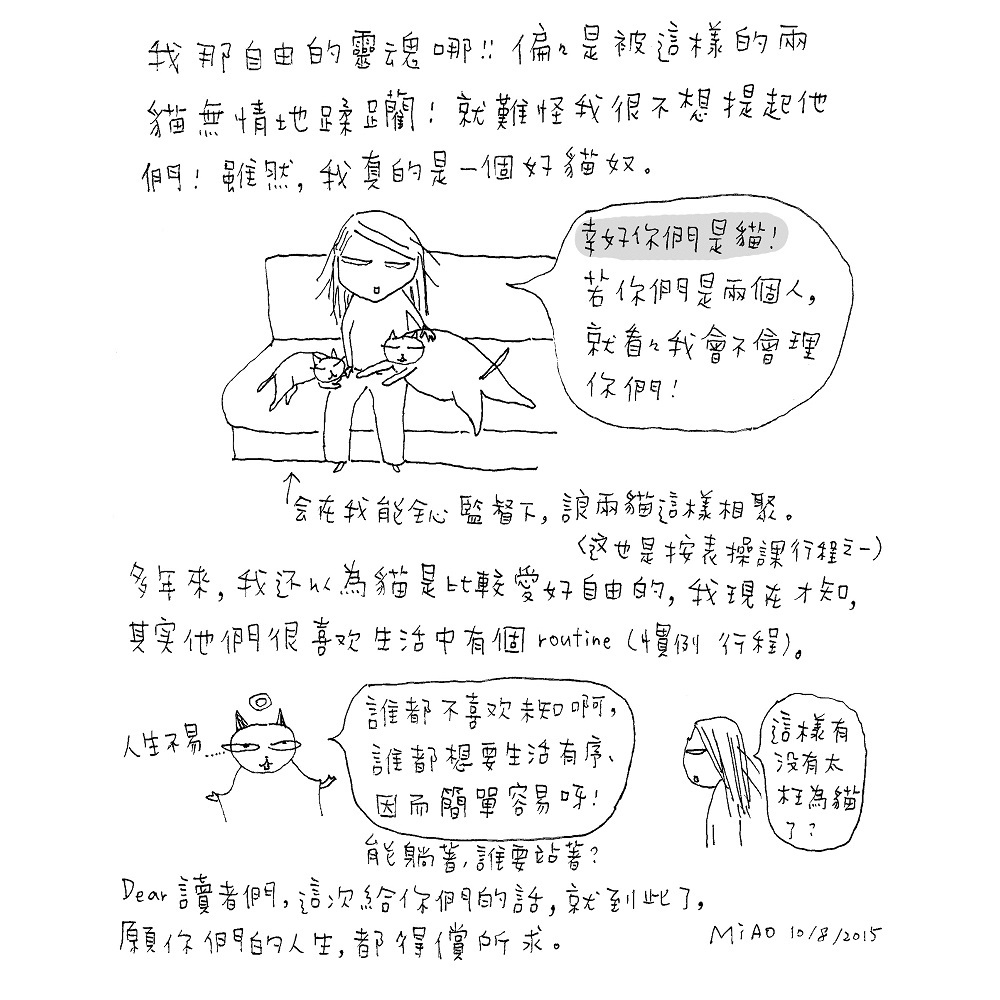 我那自由的靈魂哪!! 偏々是被這樣的兩
貓無情地蹂躪! 就難怪我很不想提起他
們! 雖然, 我真的是一個好貓奴。
幸好你們是貓!
若你們是兩個人,
就看々我會不會理
你們!
↑会在我能全心監督下, 讓兩貓這樣相聚。
(这也是按表操課行程之一)
多年來, 我还以為貓是比較愛好自由的, 我現在才知,
其实他們很喜欢生活中有個 routine (慣例 行程)。
人生不易......
誰都不喜欢未知啊,
誰都想要生活有序、
因而簡單容易呀!
能躺著, 誰要站著?
這樣有
没有太
枉為貓
了?
Dear 讀者們, 這次給你們的話, 就到此了,
願你們的人生, 都得償所求。
MiAO 10/8/2015